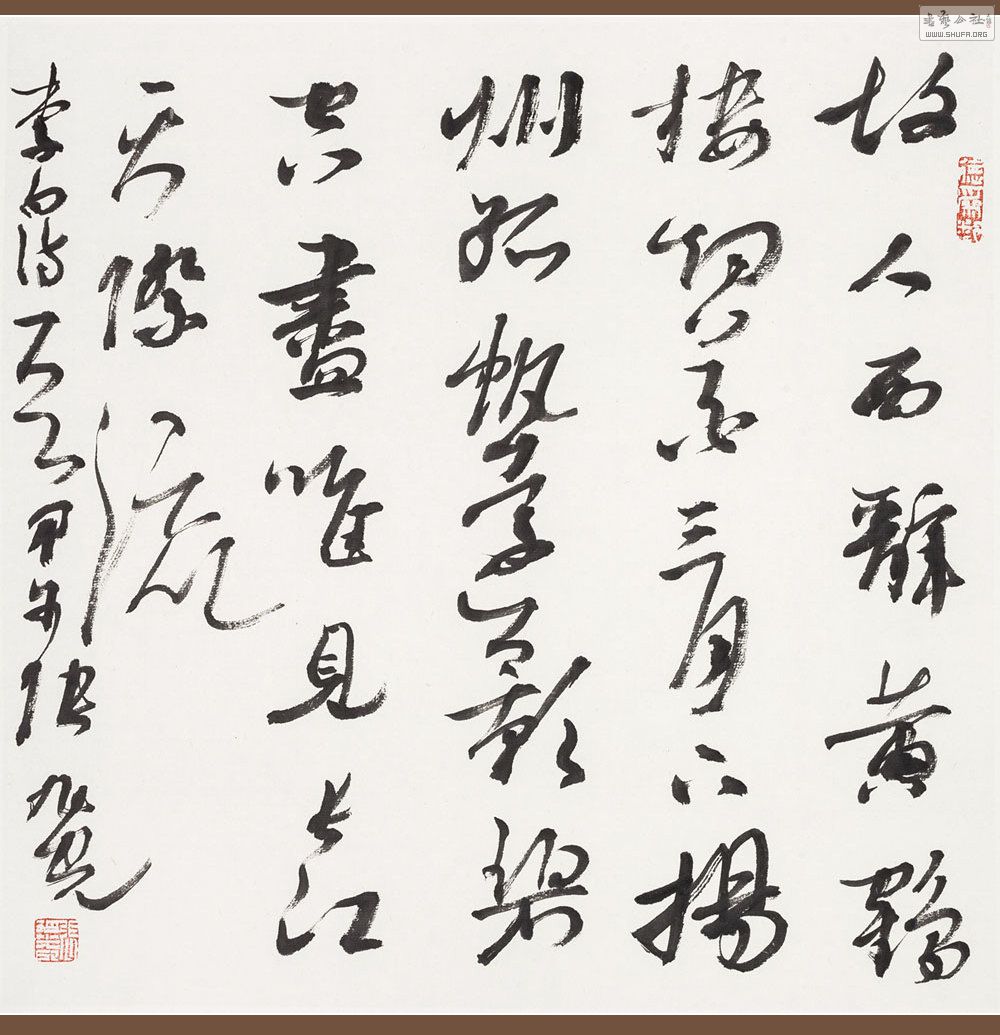 故人西辭黃鶴
樓烟花三月下揚
州孤帆遠影碧
空盡唯見長江
天際流
李白詩甲午張
书艺公社
WWW.SHUFA.ORG